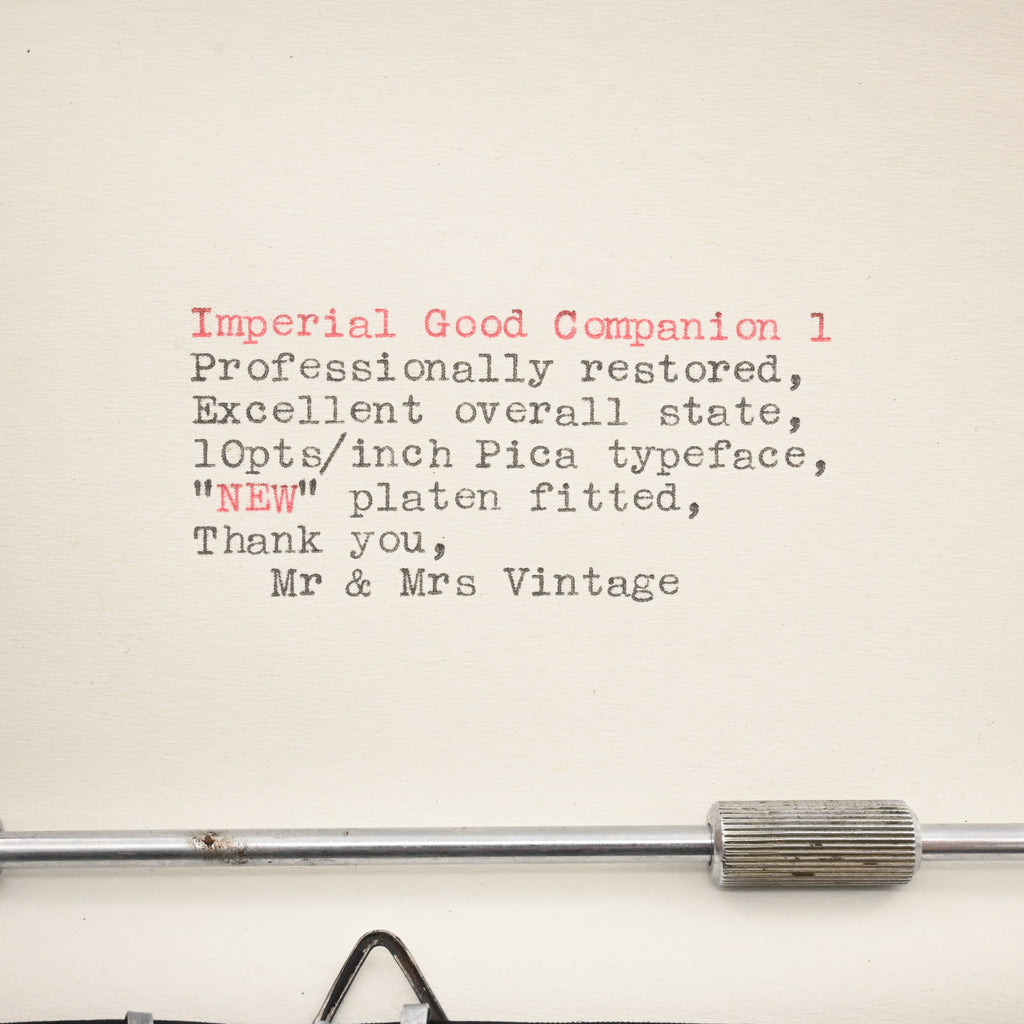 Imperial Good Companion 1
Professionally restored,
Excellent overall state,
10pts/inch Pica typeface,
"NEW" platen fitted,
Thank you,
Mr & Mrs Vintage